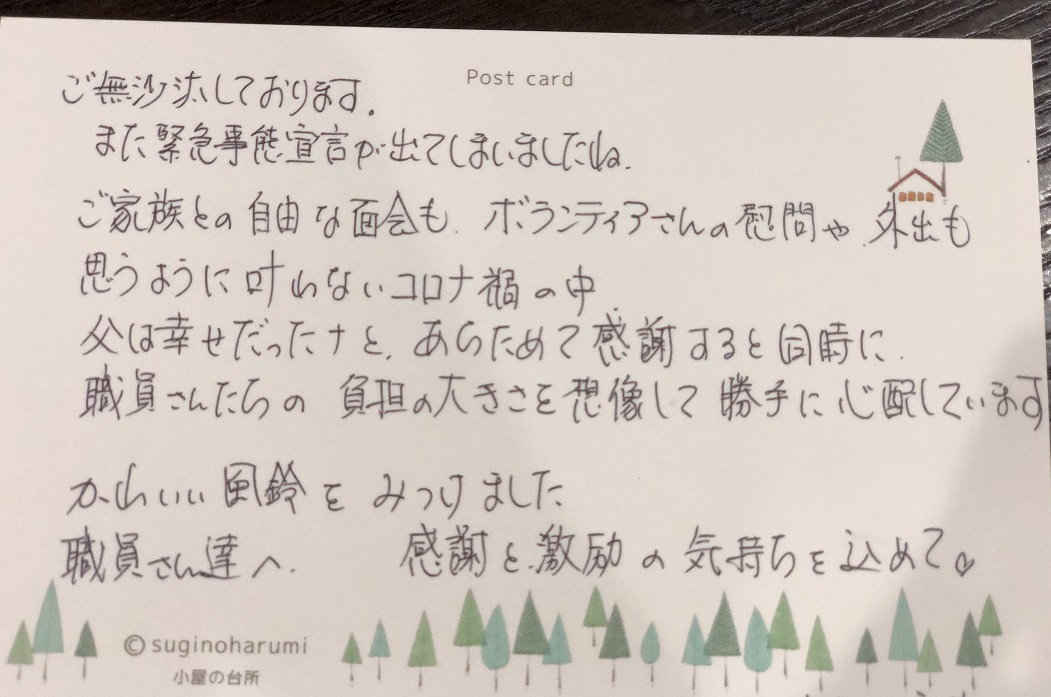 Post card
ご無沙汰しております。
また緊急事態宣言が出てしまいましたね。
ご家族との自由な面会も、ボランティアさんの慰問や、外出も
思うように叶わないコロナ禍の中
父は幸せだったナと、あらためて感謝すると同時に、
職員さんたちの負担の大きさを想像して勝手に心配しています
かわいい風鈴をみつけました
職員さん達へ、感謝と激励の気持ちを込めて♡
©suginoharumi
小屋の台所